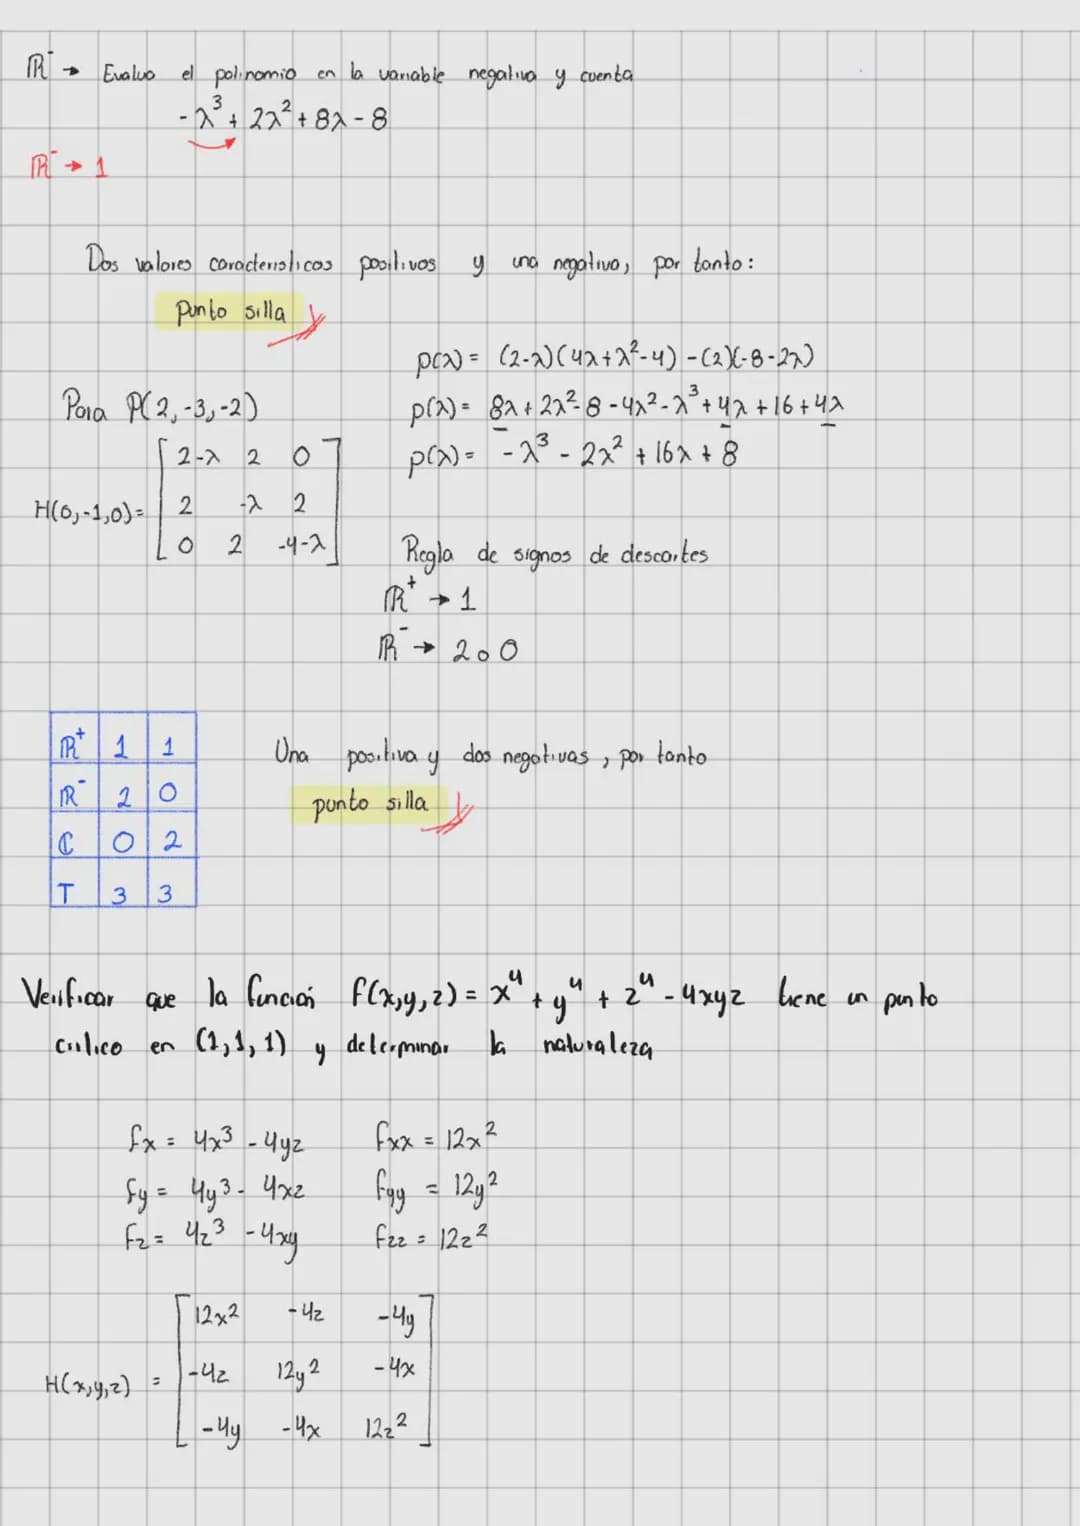 ℝ⁻ → Evaluo el polinomio en la variable negativa y cuenta
-λ³ + 2λ² + 8λ - 8
ℝ⁻ → 1
Dos valores caracteristicos positivos y una negativa, por tanto:
punto silla
p(λ) = (2-λ)(4λ+λ²-4) - (2)(-8-2λ)
Para P(2,-3,-2)
p(λ) = 8λ + 2λ² - 8 - 4λ² - λ³ + 4λ + 16 + 4λ
p(λ) = -λ³ - 2λ² + 16λ + 8
H(0,-1,0) =
2-λ 2 0
2 -λ 2
0 2 -4-λ
Regla de signos de descartes
ℝ⁺ → 1
ℝ⁻ → 2 o 0
ℝ⁺ 1 1
ℝ⁻ 2 0
ℂ 0 2
T 3 3
Una positiva y dos negativas, por tanto
punto silla
Verificar que la función f(x,y,z) = x⁴ + y⁴ + z⁴ - 4xyz tiene un punto
critico en (1,1,1) y determinar la naturaleza
fx = 4x³ - 4yz fxx = 12x²
fy = 4y³ - 4xz fyy = 12y²
fz = 4z³ - 4xy fzz = 12z²
H(x,y,z) =
12x² -4z -4y
-4z 12y² -4x
-4y -4x 12z²